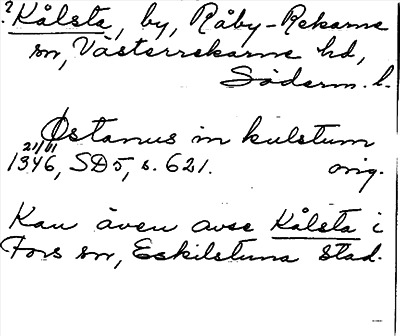 ? Kålsta, by, Råby-Rekarne
sn, Västerrekarne hd,
Söderm. l.
Østanus in kulstum
21/11
1346, SD5, s. 621. orig.
Kan även avse Kålsta i
Fors sn, Eskilstuna stad.